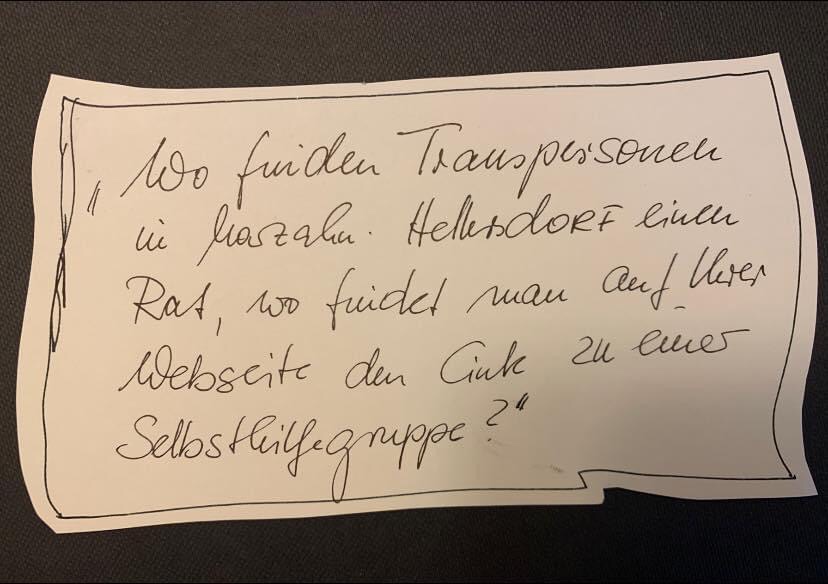 „Wo finden Transpersonen
in Marzahn. HellersDORF einen
Rat, wo findet man auf Ihrer
Webseite den Link zu einer
Selbsthilfegruppe?“